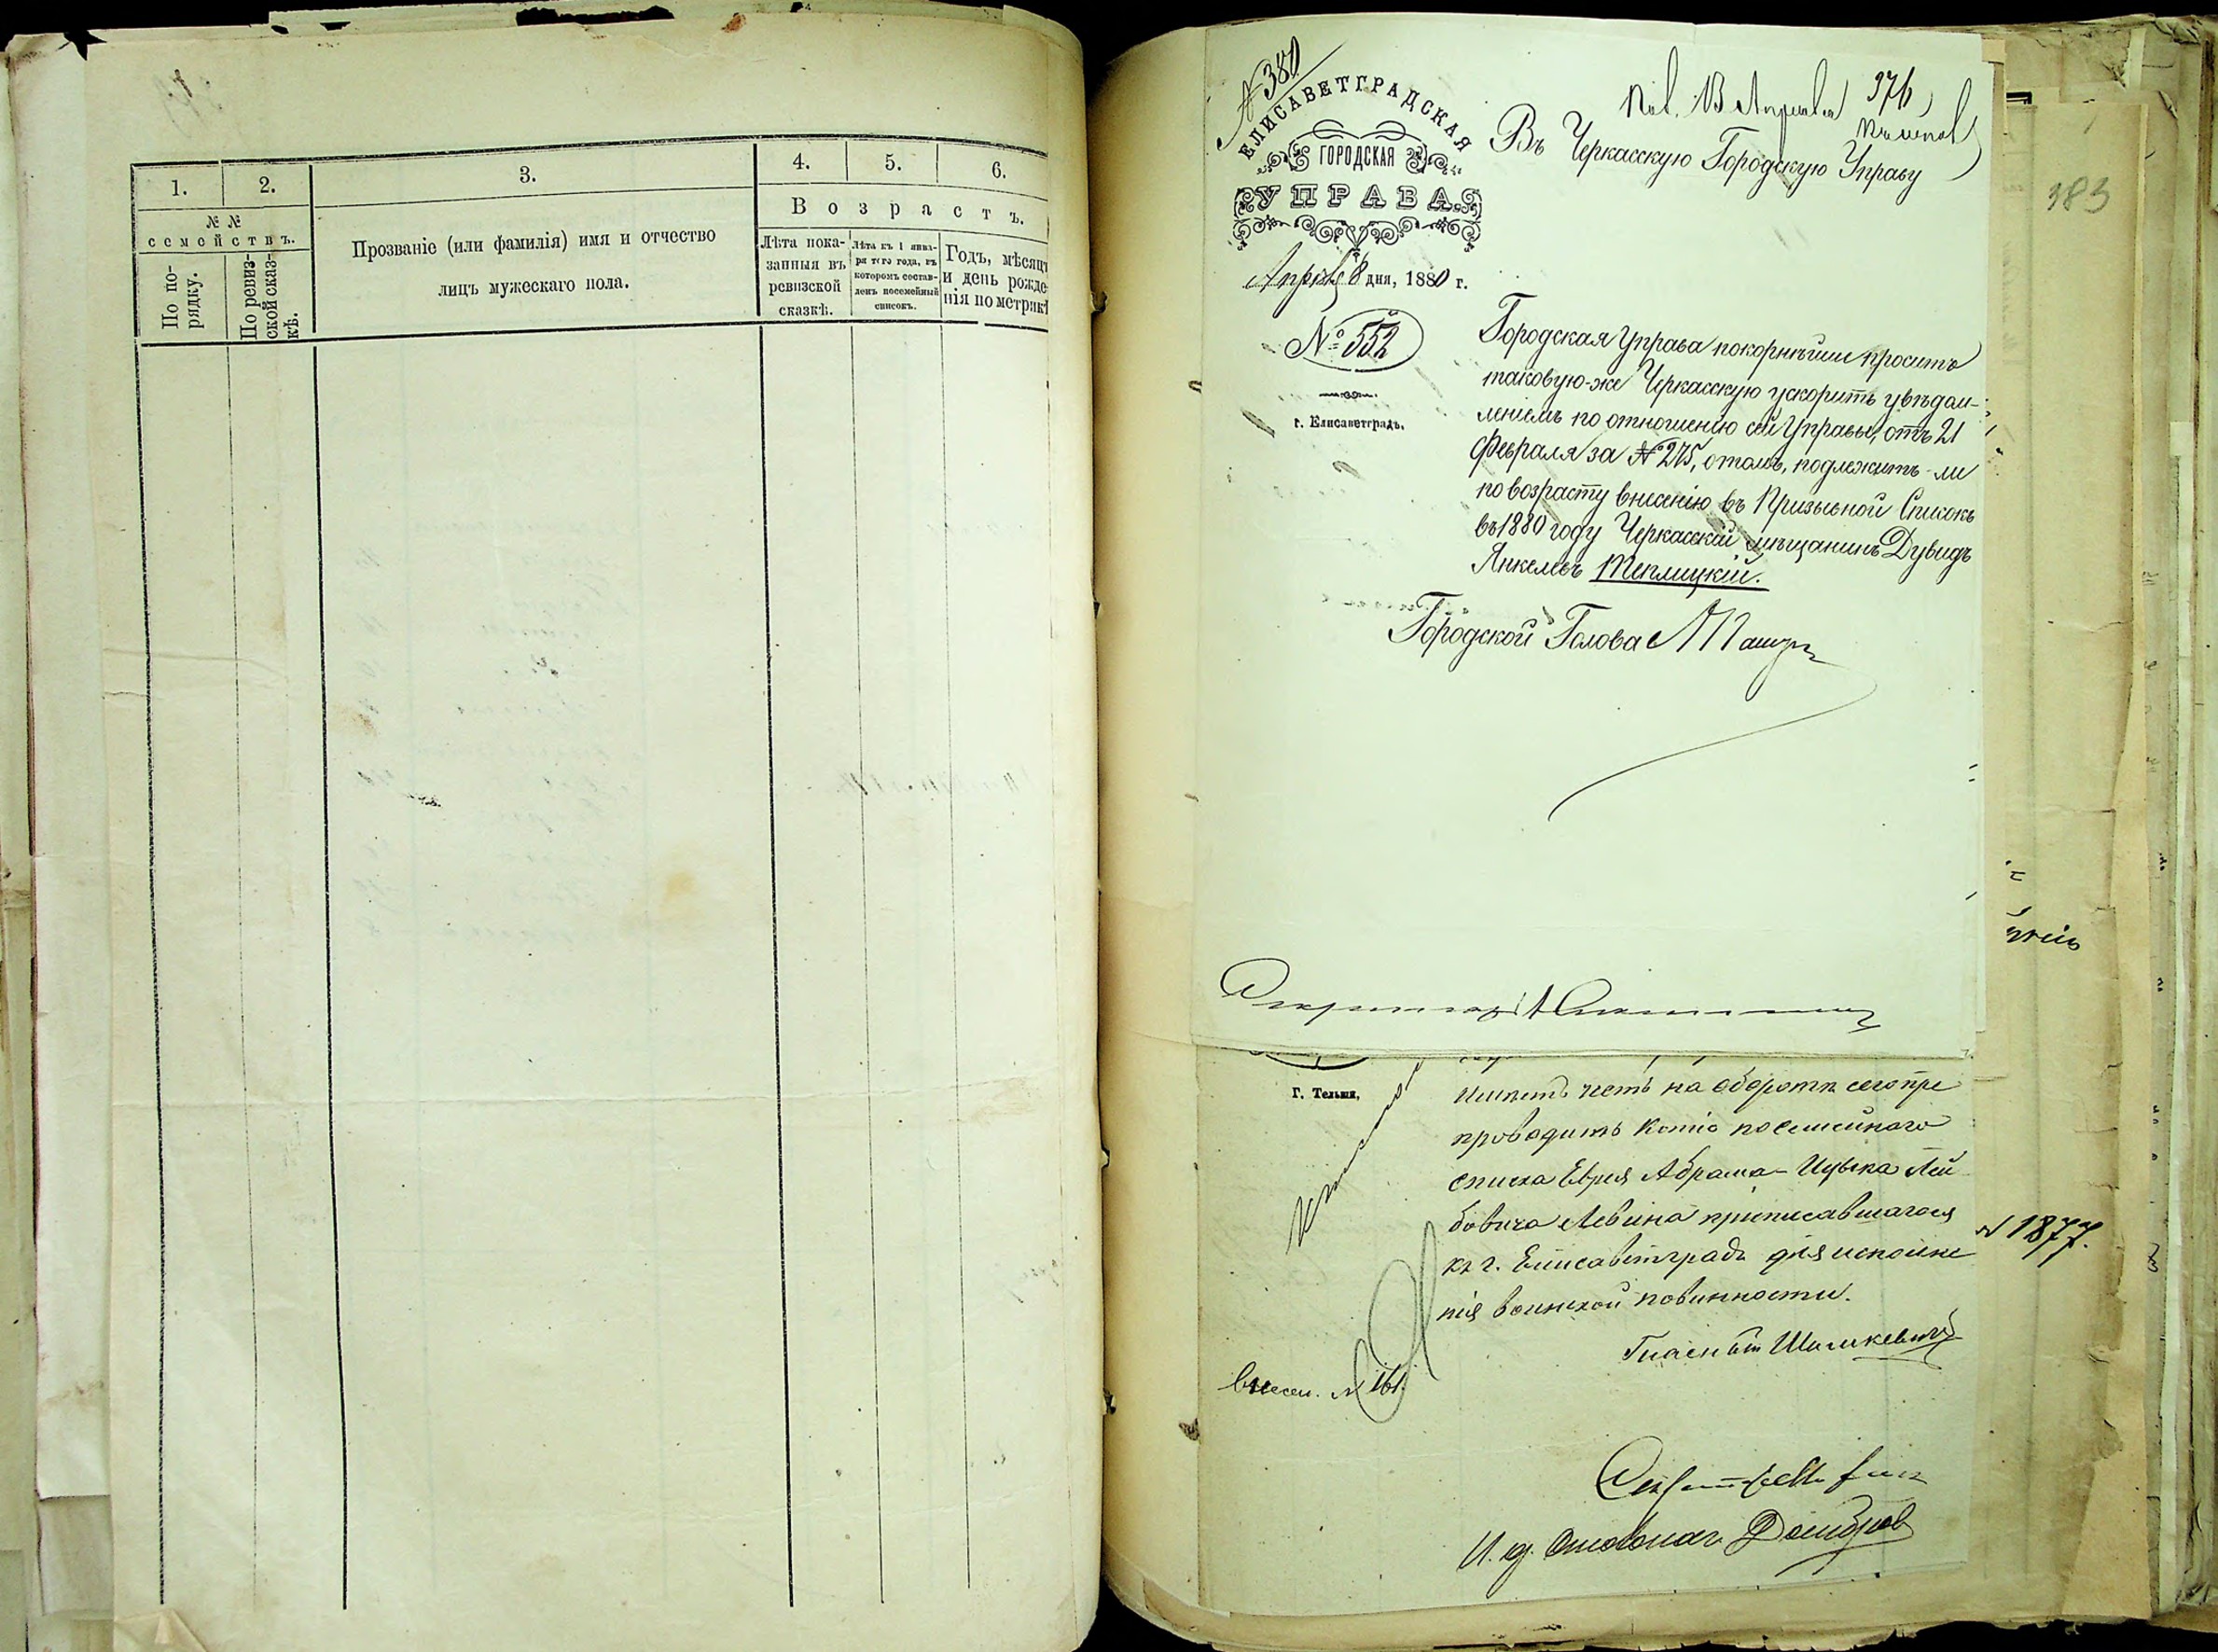 1.
2.
3.
4.
5.
6.
№ №
семействъ.
По по-
рядку.
По ревиз-
ской сказ-
кѣ.
Прозваніе (или фамилія) имя и отчество
лицъ мужескаго пола.
Возрастъ.
Лѣта пока-
занныя въ
ревизской
сказкѣ.
Лѣта къ 1 янва-
ря того года, въ
которомъ состав-
ленъ посемейный
списокъ.
Годъ, мѣсяцъ
и день рожде-
нія по метрикѣ
№ 380
ЕЛИСАВЕТГРАДСКАЯ
ГОРОДСКАЯ
УПРАВА.
Апрѣля 8 дня, 1880 г.
№ 552
г. Елисаветградъ.
Пол. 13 Апрѣля 376
383
Въ Черкасскую Городскую Управу
Городская Управа покорнѣйше проситъ
таковую-же Черкасскую ускорить увѣдом-
леніемъ по отношенію сей Управы, отъ 21
Февраля за № 275, о томъ, подлежитъ-ли
по возрасту внесенію въ Призывной Списокъ
въ 1880 году Черкасскій мѣщанинъ Дувидъ
Янкелевъ Теплицкій.
Городской Голова
Секретарь
Г. Тельши,
имѣетъ честь на оборотѣ сего пре
проводить копію посемейнаго
списка Еврея Абрама-Ицыка Лей
бовича Левина приписавшагося
къ г. Елисаветграду для исполне
нія воинской повинности.
№ 1877.
Гласный Шимкевичъ
Внесен. № 161.
Секретарь
И. д. Столонач. Домбров